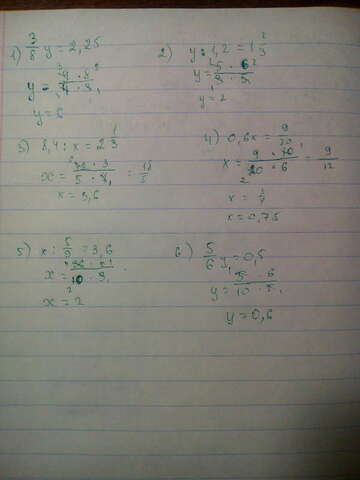 1) 3/8 y = 2,25
y = 9 · 8 / 4 · 3
y = 6
2) y : 1,2 = 1 2/3
y = 5 · 6 / 3 · 5
y = 2
3) 8,4 : x = 2 1/3
x = · 3 / 5 · 8 = 18/5
x = 3,6
4) 0,6x = 9/20
x = 9 · 10 / 20 · 6 = 9/12
x = 3/4
x = 0,75
5) x : 5/9 = 3,6
x = 36 · 5 / 10 · 9
x = 2
6) 5/6 y = 0,5
y = 5 · 6 / 10 · 5
y = 0,6